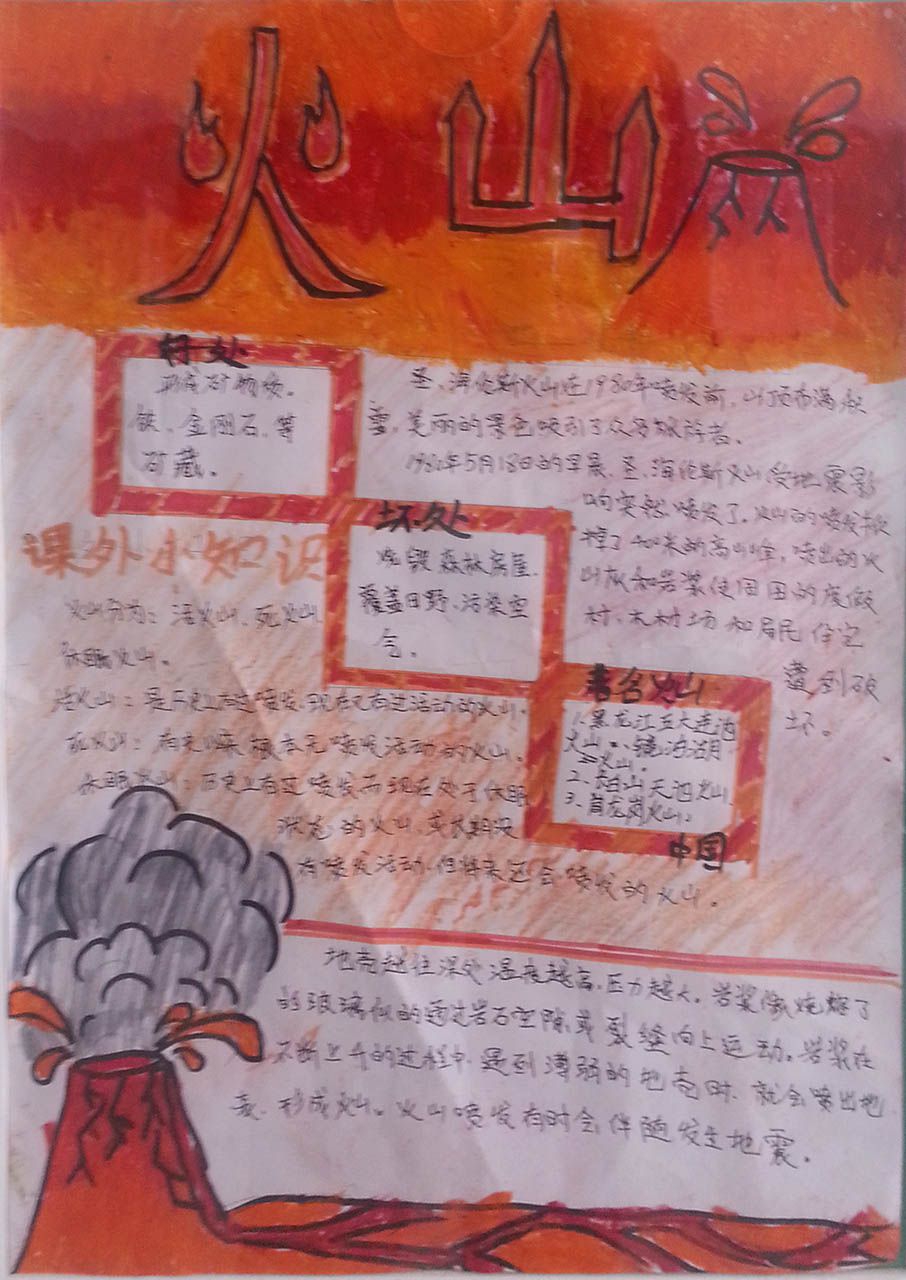 火山
好处
形成矿物质。
铁、金刚石、等
矿藏。
圣、海伦斯火山在1980年喷发前，山顶布满积
雪，美丽的景色吸引了众多旅游者。
1980年5月18日的早晨、圣、海伦斯火山受地震影
响突然喷发了。火山的喷发
掉了400米的高山峰，喷出的火
山灰和岩浆使周围的度假
村、木材场和居民住宅
遭到破
坏。
坏处
烧毁森林房屋、
覆盖田野、污染空
气。
课外小知识
火山分为：活火山、死火山
休眠火山。
活火山：是历史上有过喷发，现在又有过活动的火山。
死火山：有史以来根本无喷发活动的火山。
休眠火山：历史上有过喷发而现在处于休眠
状态的火山，或长期没
有喷发活动，但将来还会喷发的火山。
著名火山
1、黑龙江五大连池
火山、镜泊湖
火山。
2、长白山天池火山
3、火山。
中国
地壳越往深处温度越高，压力越大。岩浆像烧熔了
的玻璃似的通过岩石空隙，或裂缝向上运动。岩浆在
不断上升的过程中，遇到薄弱的地壳时，就会喷出地
表，形成火山。火山喷发有时会伴随发生地震。